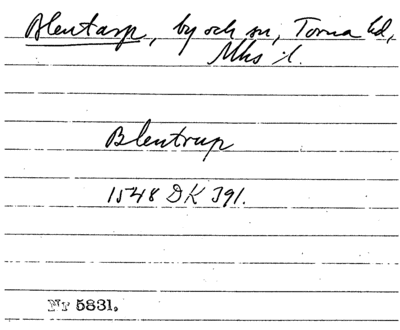 Blentarp, by och sn, Torna hd,
Mhs l.
Blentrup
1548 DK 391.
Nr 5831.